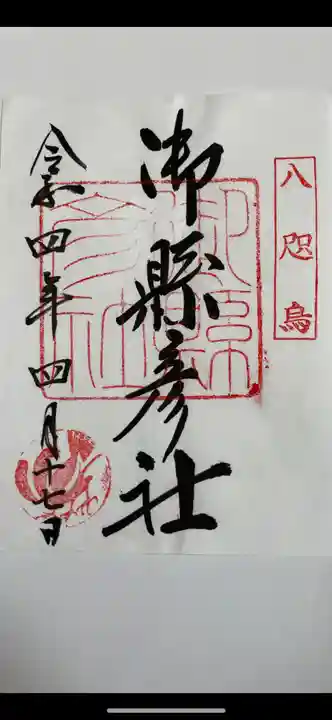 八咫烏
御縣彦社
令和四年四月十七日
御縣
彦社